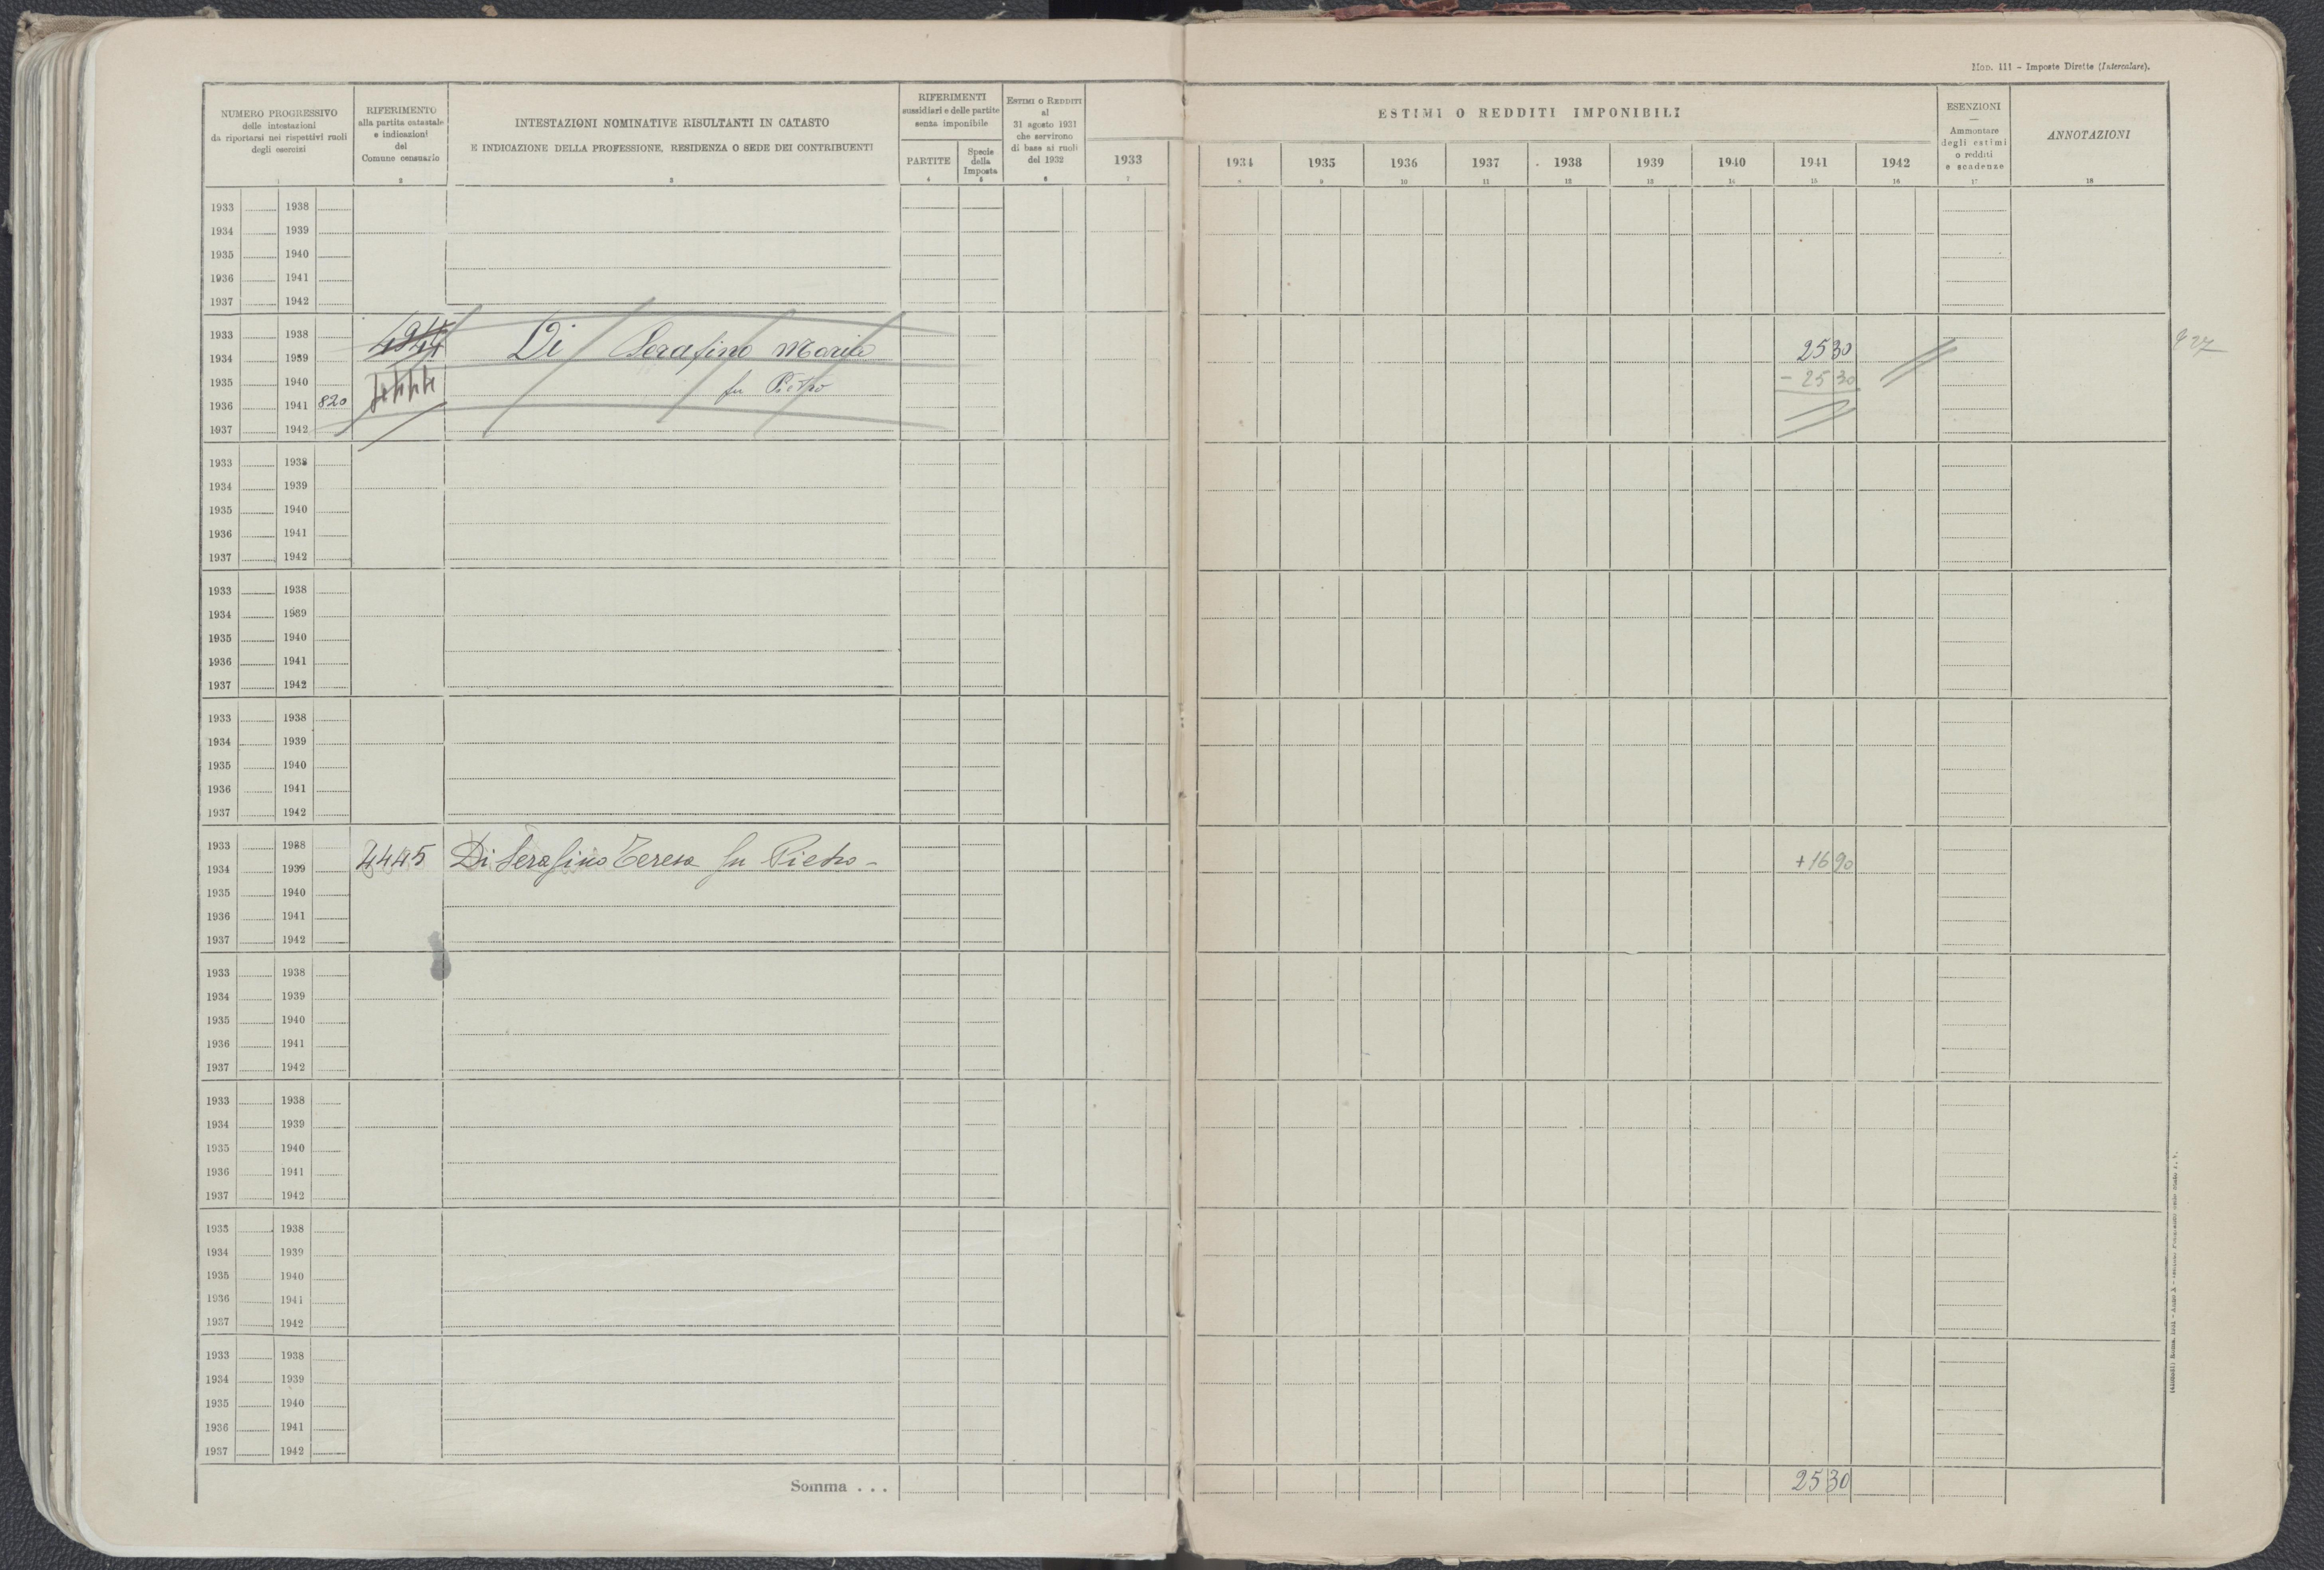 MOD. 111 – Imposte Dirette (Intercalare).
NUMERO PROGRESSIVO
delle intestazioni
da riportarsi nei rispettivi ruoli
degli esercizi
1
RIFERIMENTO
alla partita catastale
e indicazioni
del
Comune censuario
2
INTESTAZIONI NOMINATIVE RISULTANTI IN CATASTO
E INDICAZIONE DELLA PROFESSIONE, RESIDENZA O SEDE DEI CONTRIBUENTI
3
RIFERIMENTI
sussidiari e delle partite
senza imponibile
PARTITE
4
Specie
della
Imposta
5
ESTIMI O REDDITI
al
31 agosto 1931
che servirono
di base ai ruoli
del 1932
6
ESTIMI O REDDITI IMPONIBILI
1933 1934 1935 1936 1937 1938 1939 1940 1941 1942
7 8 9 10 11 12 13 14 15 16
ESENZIONI
—
Ammontare
degli estimi
o redditi
e scadenze
17
ANNOTAZIONI
18
1933 1938
1934 1939
1935 1940
1936 1941
1937 1942
1933 1938
1934 1939 Di Serafino Maria 2530
1935 1940 fu Pietro – 2530
1936 1941 820
1937 1942
1933 1938
1934 1939
1935 1940
1936 1941
1937 1942
1933 1938
1934 1939
1935 1940
1936 1941
1937 1942
1933 1938
1934 1939
1935 1940
1936 1941
1937 1942
1933 1938
1934 1939 4445 Di Serafino Teresa fu Pietro – +1690
1935 1940
1936 1941
1937 1942
1933 1938
1934 1939
1935 1940
1936 1941
1937 1942
1933 1938
1934 1939
1935 1940
1936 1941
1937 1942
1933 1938
1934 1939
1935 1940
1936 1941
1937 1942
1933 1938
1934 1939
1935 1940
1936 1941
1937 1942
Somma . . . 2530